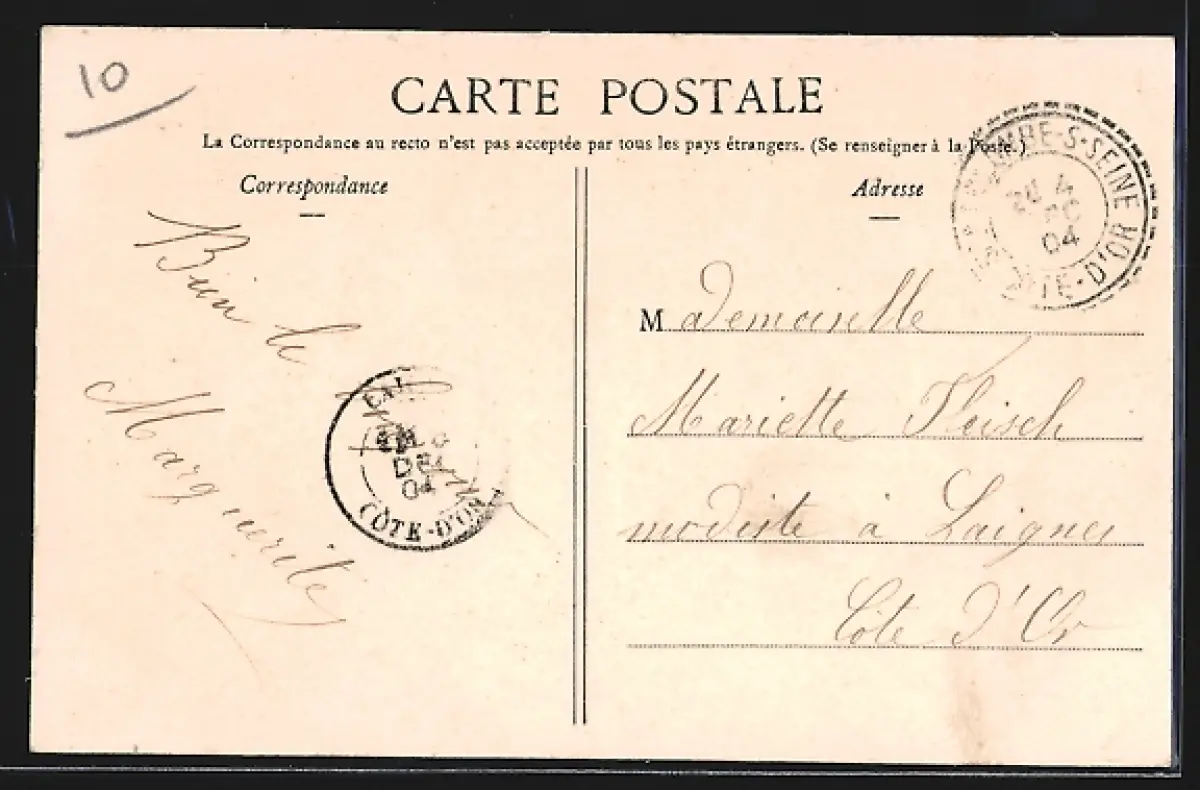 10
CARTE POSTALE
La Correspondance au recto n'est pas acceptée par tous les pays étrangers. (Se renseigner à la Poste.)
Correspondance
Adresse
-S-SEINE
4
04
CÔTE-D'OR
Bien le
Marguerite
DE
04
CÔTE-D'OR
Mademoiselle
Mariette Fleisch
modiste à Laignes
Côte d'Or